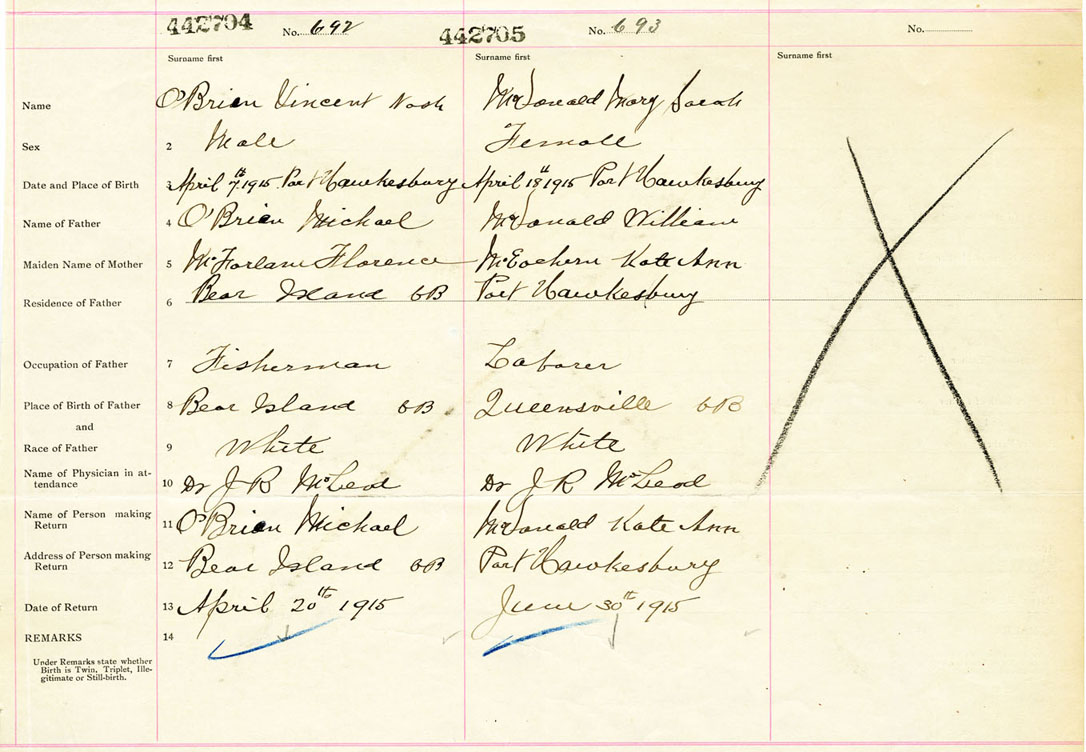 442704 No. 692 442705 No. 693 No.
Surname first Surname first Surname first
Name O'Brien Vincent Nash McDonald Mary Sarah
Sex 2 Male Female
Date and Place of Birth 3 April 7th 1915 Port Hawkesbury April 18th 1915 Port Hawkesbury
Name of Father 4 O'Brien Michael McDonald William
Maiden Name of Mother 5 McFarlane Florence McEachern Kate Ann
Residence of Father 6 Bear Island CB Port Hawkesbury
Occupation of Father 7 Fisherman Laborer
Place of Birth of Father 8 Bear Island CB Queensville CB
and
Race of Father 9 White White
Name of Physician in at-
tendance 10 Dr J R McLeod Dr J R McLeod
Name of Person making
Return 11 O'Brien Michael McDonald Kate Ann
Address of Person making
Return 12 Bear Island CB Port Hawkesbury
Date of Return 13 April 20th 1915 June 30th 1915
REMARKS 14
Under Remarks state whether
Birth is Twin, Triplet, Ille-
gitimate or Still-birth.